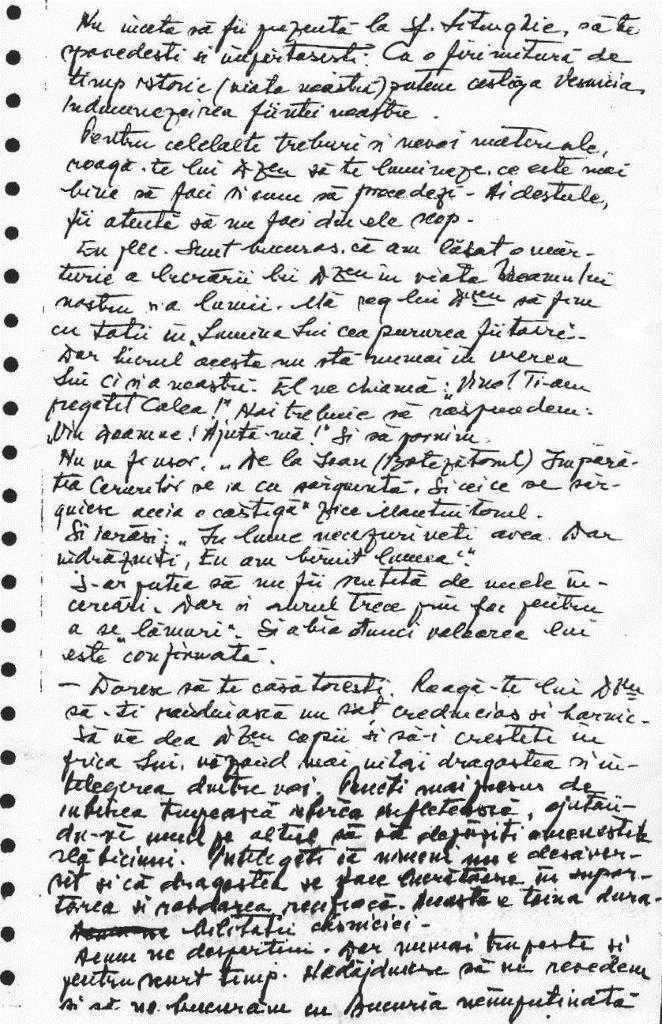 Nu înceta să fii prezentă la Sf. Liturghie, să te
spovedești și împărtășești. Ca o fărâmitură de
timp istoric (viața noastră) putem câștiga Veșnicia,
Îndumnezeirea ființei noastre.
Pentru celelalte treburi și nevoi materiale,
roagă-te lui Dzeu să te lumineze, ce este mai
bine să faci și cum să procedezi - Ai destule,
fii atentă să nu faci din ele scop.
Eu plec. Sunt bucuros, că am lăsat o măr-
turie a lucrării lui Dzeu în viața Neamului
nostru și a lumii. Mă rog lui Dzeu să fim
cu toții în "Lumina Lui cea pururea fiitoare.-
Dar lucrul acesta nu stă numai în vrerea
Lui ci și a noastră. El ne chiamă: "Vino! Ți-am
pregătit Calea!" Noi trebuie să răspundem:
"Vin Doamne! Ajută-mă!" Și să pornim.
Nu va fi ușor. "De la Ioan (Botezătorul) Împără-
ția Cerurilor se ia cu sârguință. Și cei ce se sâr-
guiesc aceia o câștigă" zice Mântuitorul.
Și iarăși: "În lume necazuri veți avea. Dar
îndrăzniți, Eu am biruit lumea".
S-ar putea să nu fii scutită de unele în-
cercări. Dar și aurul trece prin foc pentru
a se "lămuri". Și abia atunci valoarea lui
este confirmată.
- Doresc să te căsătorești. Roagă-te lui Dzeu
să-ți rânduiască un soț credincios și harnic.
Să vă dea Dzeu copii și să-i creșteți în
frica Lui, văzând mai întâi dragostea și în-
țelegerea dintre voi. Puneți mai presus de
iubirea trupească iubirea sufletească, ajutân-
du-vă unul pe altul să vă depășiți omeneștile
slăbiciuni. Înțelegeți că nimeni nu e desăvâr-
șit și că dragostea se face lucrătoare în supor-
tarea și răbdarea reciprocă. Aceasta e taina dura-
bilității căsniciei.-
Acum ne despărțim. Dar numai trupește și
pentru scurt timp. Nădăjduiesc să ne revedem
și să ne bucurăm cu Bucuria neîmpuținată